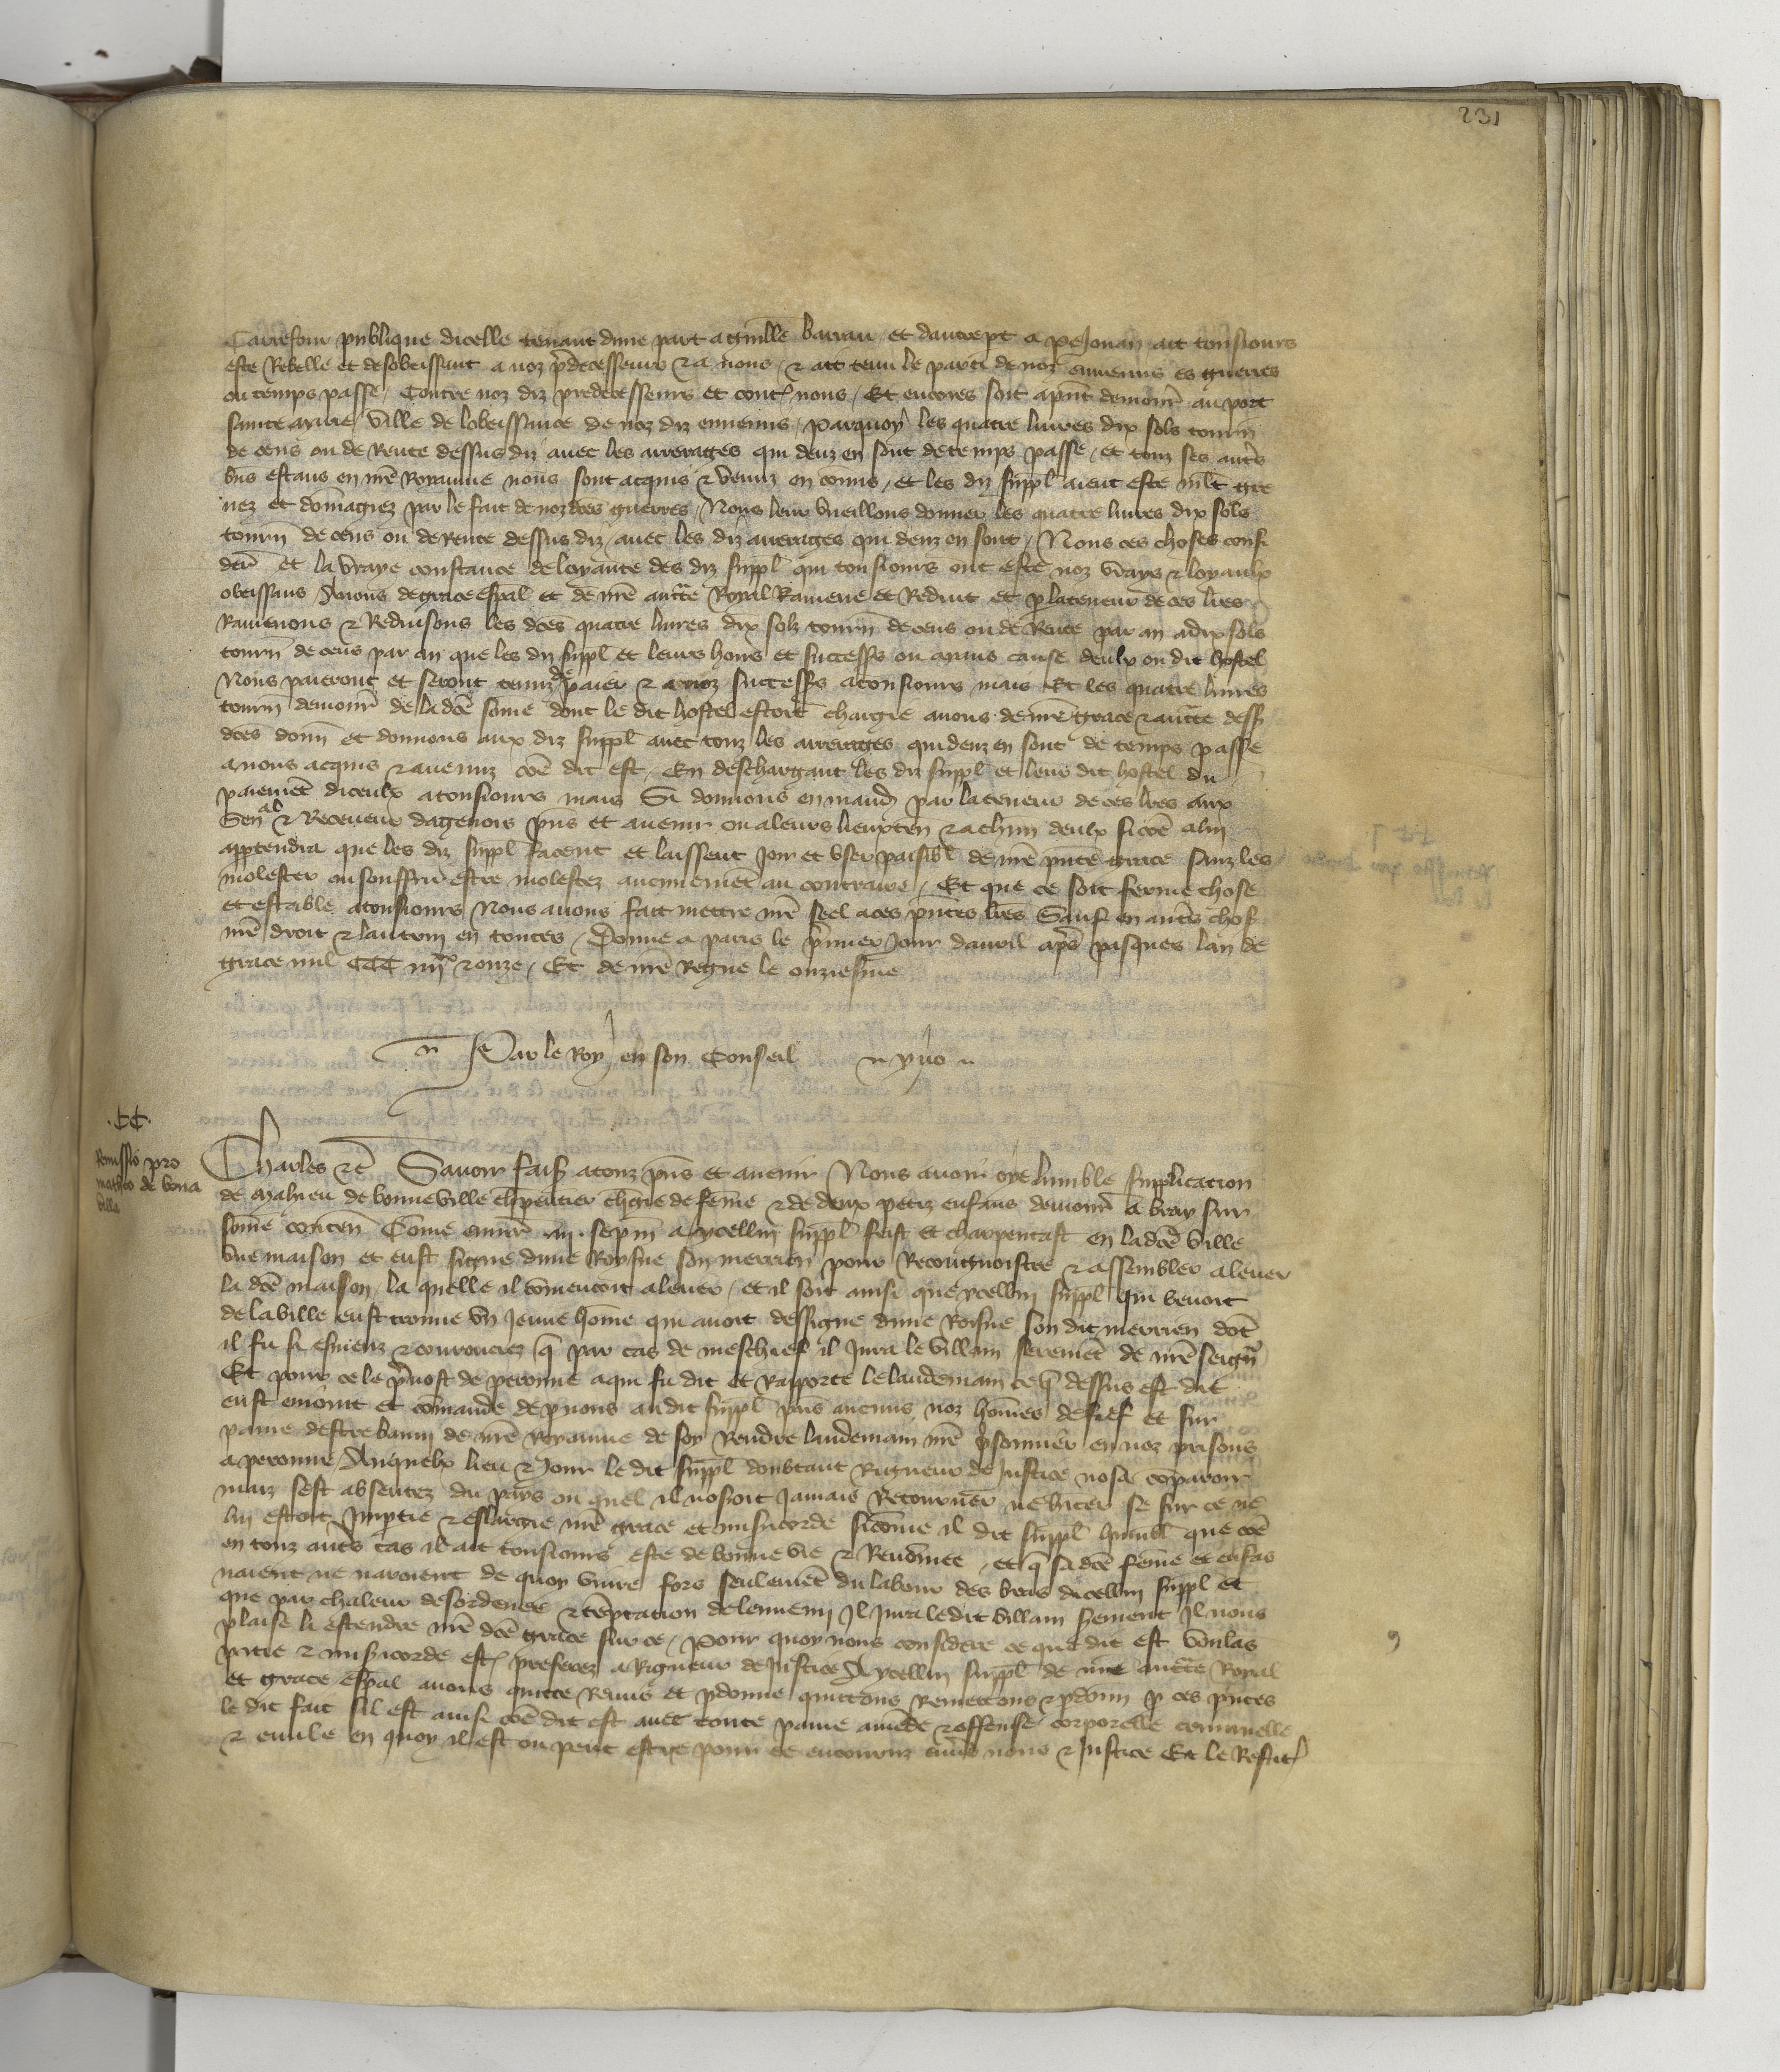 231
Carrefour publique dicelle tenant dune part a guille barrau et dautre pt a pe Jouan ait tousiours
este Rebelle et desobeissant a noz pdecesseurs & a nous & ait tenu le parti de noz ennemis es guerres
ou temps passe Contre noz diz predecesseurs et cont nous Et encores soit apnt demour au port
sainte marie ville de lobeissance de noz diz ennemis parquoy les quatre liures dix sols tourn
de cens ou de Rente dessus diz auec les arrerages qui deuz en sont de temps passe et touz ses autres
bns estans en nre Royaume nous sont acquis & venuz en comis et les diz suppl aient este mlt gre
uez et domagiez par le fait de noz dces guerres Nous leur vueillons donner les quatre liures dix sols
tourn de cens ou de Rente dessus diz auec les diz arrerages qui deuz en sont Nous ces choses consi
der et la vraye constance de loyaute des diz suppl qui tousiours ont este noz vrays & loyaulx
obeissans Auons de grace espal et de nre aucte Royal Ramene et Reduit et p la teneur de ces lres
Ramenons & Reduisons les dces quatre liures dix solz tourn de cens ou de Rente par an a dix sols
tourn de cens par an que les diz suppl et leurs hoirs et successrs ou aians cause deulx ou dit hostel
Nous paieront et seront tenuz de paier & a noz successrs a tousiours mais Et les quatre liures
tourn demour de la dce some dont le dit hostel estoit chargie auons de nre grace & aucte dess
dces donn et donnons aux diz suppl auec touz les arrerages qui deuz en sont de temps passe
a nous acquis & auenuz coe dit est En deschargant les diz suppl et leur dit hostel du
paiemet diceulx a tousiours mais Si donnons en mand par la teneur de ces lres aux
Senal & Receueur dagenois pns et auenir ou a leurs lieuxten & a chun deulx si coe a lui
apptendra que les diz suppl facent et laissent joir et vser paisibl de nre pnte grace sanz les
molester ou souffrir estre molestez aucunemet au contraire Et que ce soit ferme chose
et estable a tousiours Nous auons fait mettre nre seel a ces pntes lres Sauf en autres chos
nre droit & lautrui en toutes Donne a paris le pmier Jour dauril apres pasques lan de
grace mil CCC iiiixx & onze Et de nre Regne le onziesme
Par le Roy en son Conseil yuo
.CC.
Remissio pro
matheo de bona
villa
Charles &c Sauoir fais a touz pns et auenir Nous auoir oye lumble supplication
de mahieu de bonneville chpentier chgie de feme & de deux petiz enfans demour a bray sur
some conten Come enuir un sepm a ycellui suppl feist et charpentast en la dce ville
vne maison et eust signe dune Roysne son merrien pour Recongnoistre & assembler a leuer
la dce maison la quelle il comencoit a leuer et il soit ainsi que ycellui suppl qui venoit
de la ville eust trouue vn Jeune home qui auoit dessigne dune Roisne son dit merrien dot
il fu si esmeuz & courrouciez q par cas de meschief il Jura le villain seremet de nre seignr
Et pour ce le puost de peronne a qui fu dit et Rapporte le landemain ce q dessus est dit
eust enioint et comande de p nous au dit suppl pns aucuns noz homes de fief et sur
paine destre banni de nre Royaume de soy Rendre landemain nre psonnier en noz prisons
a peronne Auquelx lieu & Jour le dit suppl doubtant Rigueur de Justice nosa coparoir
maiz sest absentez du pays ou quel il nosoit Jamais Retourner ne hnter se sur ce ne
lui estoit Imptie & eslargie nre grace et misicorde sicome il dit suppl humbl que coe
en touz autres cas il ait tousiours este de bonne vie & Renomee et q sa dce feme et enfas
naient ne naroient de quoy viure fors seulemet du labour des bras dicellui suppl et
que par chaleur desordenee & teptation de lennemi Il Jura ledit villain sement Il nous
plaise li estendre nre dce grace sur ce Pour quoy nous considere ce que dit est voulas
pitie & misicorde est preferez a Rigueur de Justice A ycellui suppl de nre aucte Royal
et grace espal auons quitte Remis et pdonne quittons Remettons & pdonn p ces pntes
le dit fait sil est ainsi coe dit est auec toute paine amede & offense corporelle criminelle
& ciuile en quoy il est ou peut estre pour ce encouruz enuers nous & Justice Et le Restit